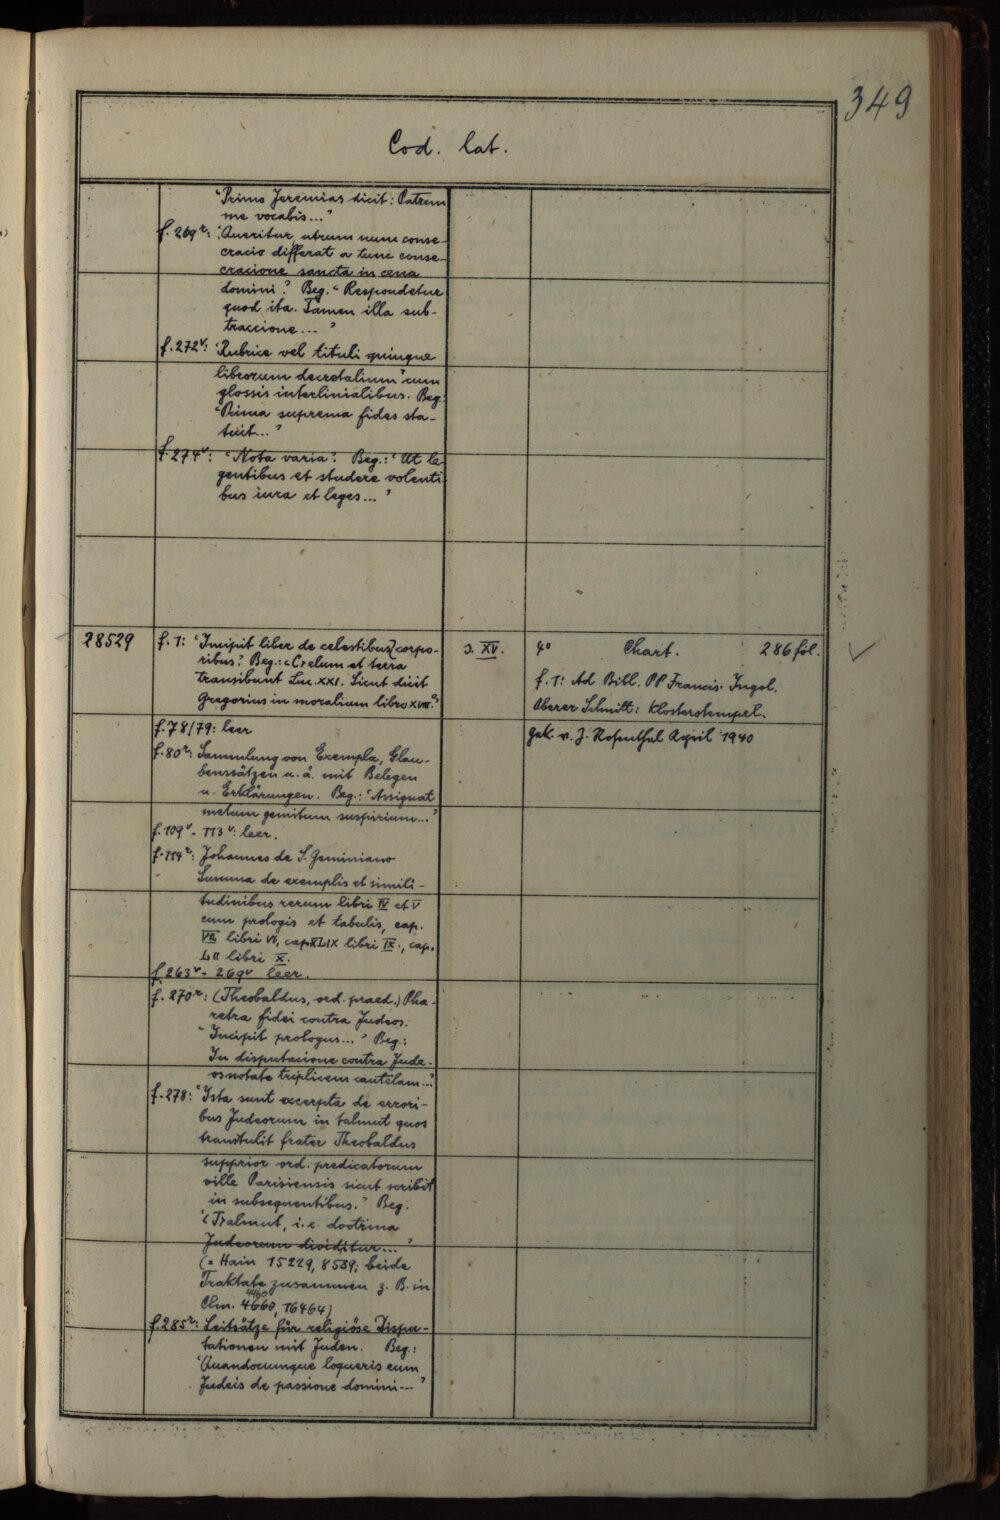 349
Cod. lat.
"Primo Jeremias dicit: Patrem
me vocabis..."
f. 269r: "Queritur utrum nunc conse-
cracio differat a tunc conse-
cracione sancta in cena
domini". Beg. "Respondetur
quod ita. Tamen illa sub-
traccione..."
f. 272v: "Rubrice vel tituli quinque
librorum decretalium" cum
glossis interlinialibus. Beg.
"Prima suprema fides sta-
tuit..."
f. 274v: "Nota varia". Beg.: "Ut le-
gentibus et studere volenti-
bus iura et leges..."
28529 f. 1: "Incipit liber de celestibus corpo- s. XV. 4° Chart. 286 fol.
ribus". Beg.: "Celum et terra
transibunt Luc. XXI. Sicut dicit
Gregorius in moralium libro XVII"
f. 1: Ad Bibl. PP Francis. Ingol.
Oberer Schnitt: Klosterstempel.
gek. v. J. Rosenthal April 1940
f. 78/79: leer
f. 80r: Sammlung von Exempla, Glau-
benssätzen u. ä. mit Belegen
u. Erklärungen. Beg.: "Assignat
metum gemitum suspirium..."
f. 109v - 113v: leer.
f. 114r: Johannes de S. Geminiano
Summa de exemplis et simili-
tudinibus rerum libri IV et V
cum prologis et tabulis, cap.
VII libri VI, cap. XLIX libri IX., cap.
LII libri X.
f. 263v - 269v leer.
f. 270r: (Theobaldus, ord. praed.) Pha-
retra fidei contra Judeos.
"Incipit prologus..." Beg:
In disputacione contra Jude-
os notate triplicem cautelam..."
f. 278: "Ista sunt excerpta de errori-
bus Judeorum in talmut quos
transtulit frater Theobaldus
supprior ord. predicatorum
ville Parisiensis sicut scribit
in subsequentibus." Beg.
"(T)almut, i. e. doctrina
Judeorum dividitur..."
(= Hain 15229, 8589; beide
Traktate zusammen z. B. in
Clm. 4660, 16464)
f. 285r: Leitsätze für religiöse Dispu-
tationen mit Juden. Beg:
"Quandocumque loqueris cum
Judeis de passione domini..."